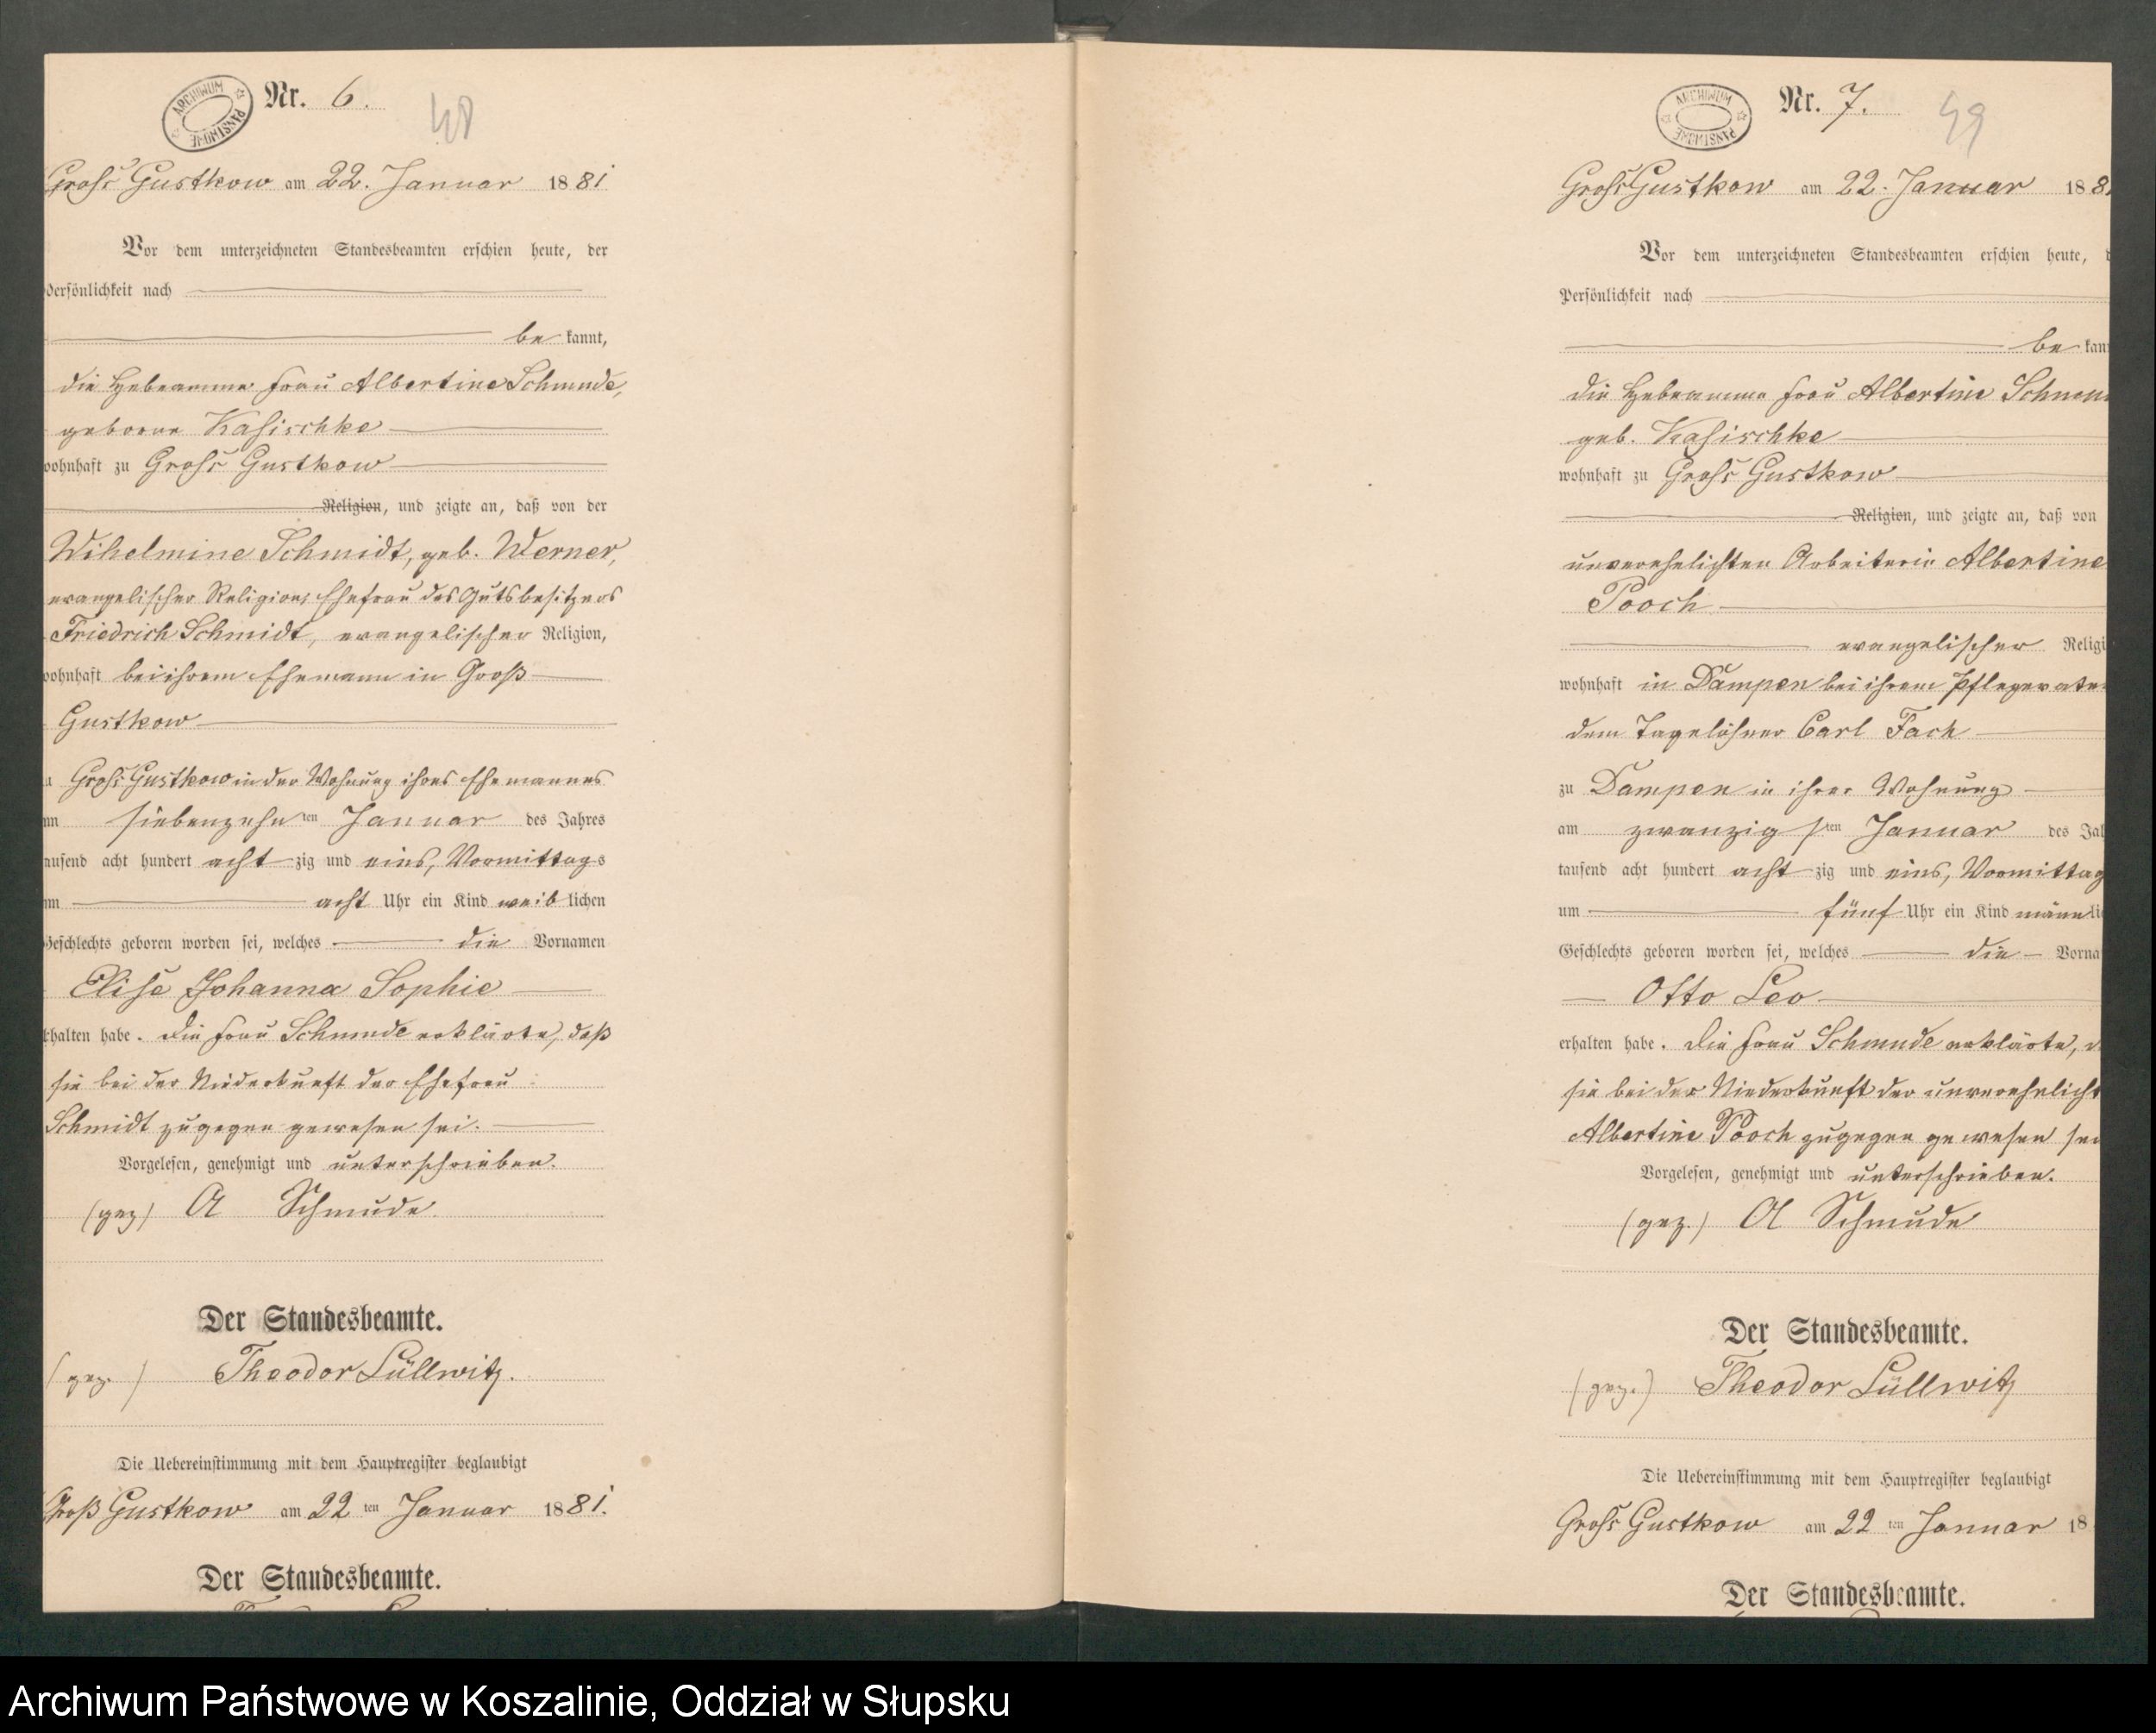 ARCHIWUM PAŃSTWOWE
Nr. 6.
48
Groß Gustkow am 22. Januar 1881
Vor dem unterzeichneten Standesbeamten erschien heute, der
Persönlichkeit nach
be kannt,
die Hebeamme Frau Albertine Schmude,
geborne Kasischke
wohnhaft zu Groß Gustkow
Religion, und zeigte an, daß von der
Wihelmine Schmidt, geb. Werner,
evangelischer Religion, Ehefrau des Gutsbesitzers
Friedrich Schmidt, evangelischer Religion,
wohnhaft bei ihrem Ehemann in Groß
Gustkow
u Groß Gustkow in der Wohnung ihres Ehemannes
am siebenzehn ten Januar des Jahres
tausend acht hundert acht zig und eins, Vormittags
um acht Uhr ein Kind weib lichen
Geschlechts geboren worden sei, welches die Vornamen
Elise Johanna Sophie
erhalten habe. Die Frau Schmude erklärte, daß
sie bei der Niederkunft der Ehefrau
Schmidt zugegen gewesen sei.
Vorgelesen, genehmigt und unterschrieben.
(gez) A Schmude.
Der Standesbeamte.
(gez.) Theodor Lüllwitz.
Die Uebereinstimmung mit dem Hauptregister beglaubigt
Groß Gustkow am 22 ten Januar 1881.
Der Standesbeamte.
ARCHIWUM PAŃSTWOWE
Nr. 7.
49
Groß Gustkow am 22. Januar 188
Vor dem unterzeichneten Standesbeamten erschien heute, d
Persönlichkeit nach
be kan
die Hebeamme Frau Albertine Schmu
geb. Kasischke
wohnhaft zu Groß Gustkow
Religion, und zeigte an, daß von
unverehelichten Arbeiterin Albertine
Pooch
evangelischer Religi
wohnhaft in Dampen bei ihrem Pflegevate
dem Tagelöhner Carl Fach
zu Dampen in ihrer Wohnung
am zwanzig sten Januar des Jah
tausend acht hundert acht zig und eins, Vormittag
um fünf Uhr ein Kind männ li
Geschlechts geboren worden sei, welches die Vorna
Otto Leo
erhalten habe. Die Frau Schmude erklärte, d
sie bei der Niederkunft der unverehelicht
Albertine Pooch zugegen gewesen sei
Vorgelesen, genehmigt und unterschrieben.
(gez.) A Schmude
Der Standesbeamte.
(gez.) Theodor Lüllwitz
Die Uebereinstimmung mit dem Hauptregister beglaubigt
Groß Gustkow am 22 ten Januar 18
Der Standesbeamte.
Archiwum Państwowe w Koszalinie, Oddział w Słupsku